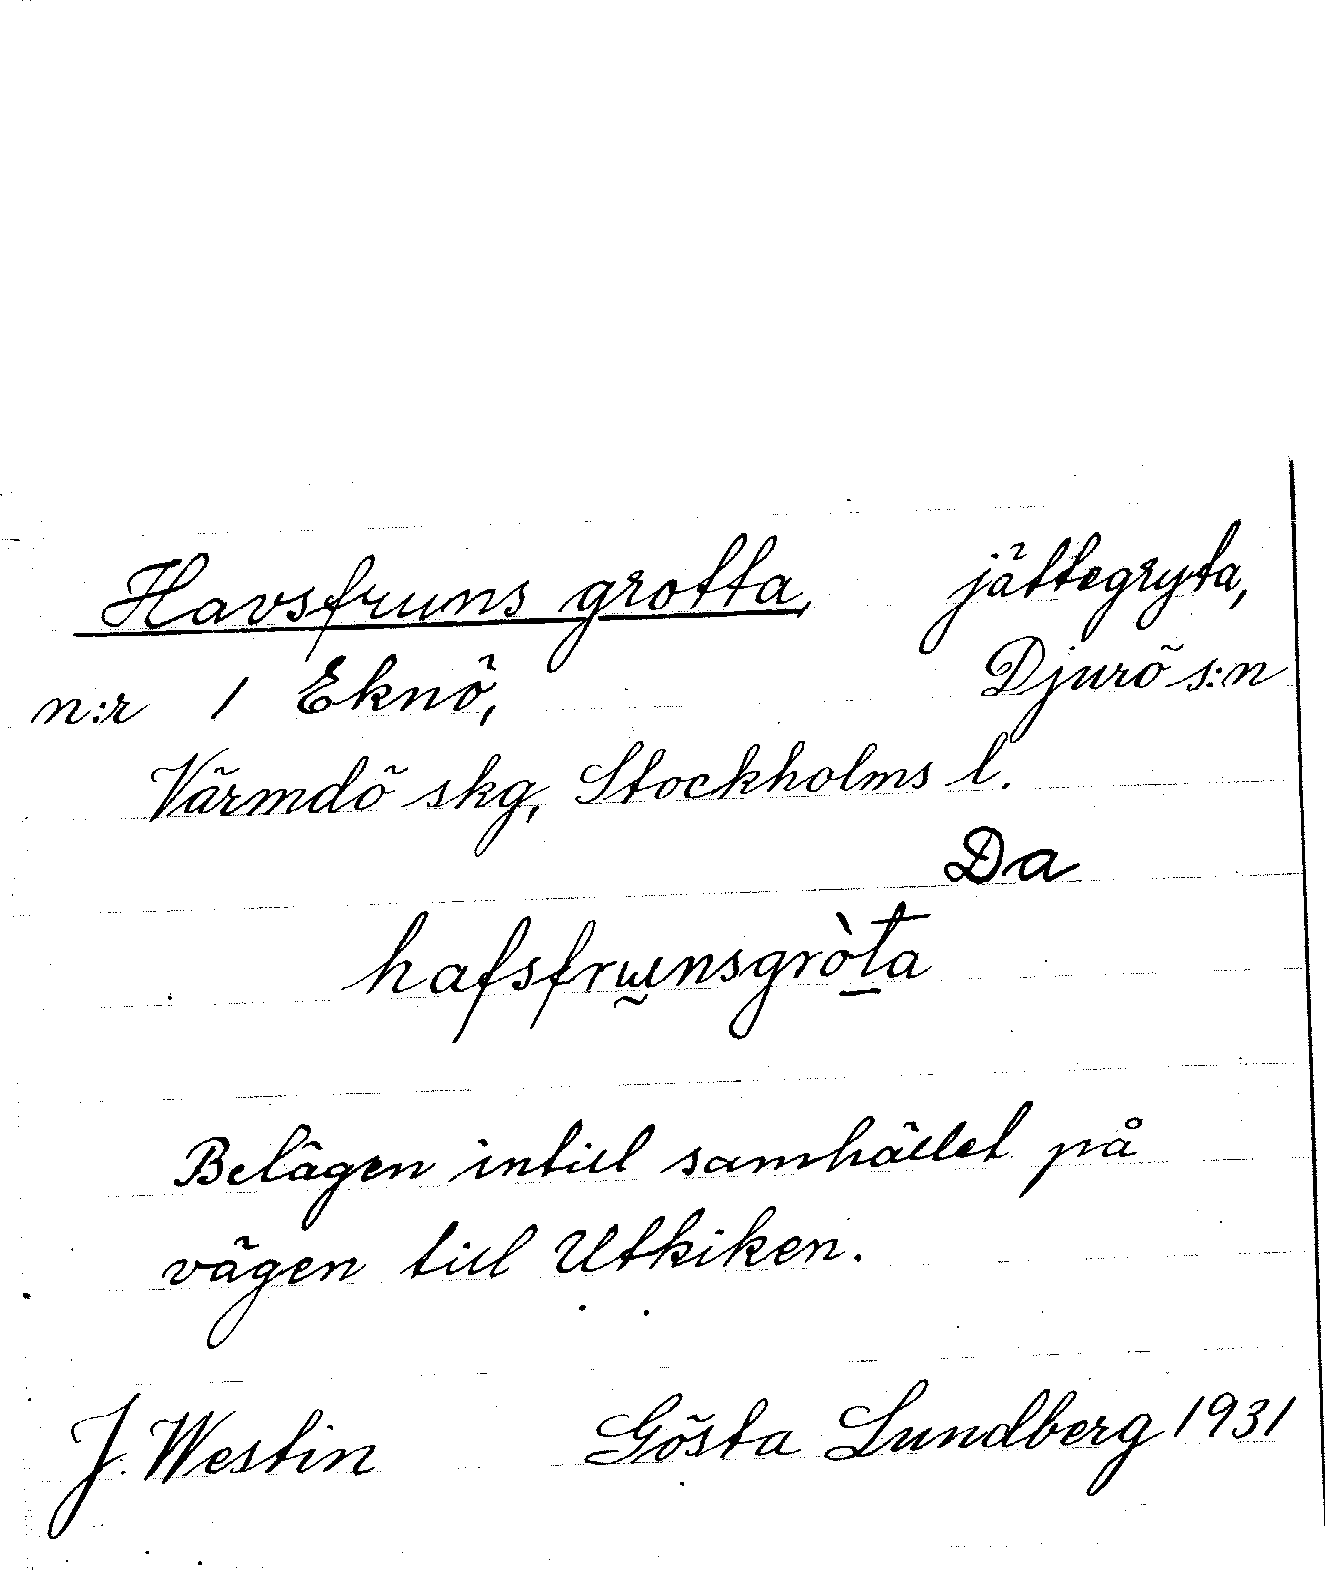 Havsfruns grotta, jättegryta,
n:r 1 Eknö, Djurö s:n
Värmdö skg, Stockholms l.
Da
hafsfrɯ̰nsgròt̲a
Belägen intill samhället på
vägen till Utkiken.
J. Westin Gösta Lundberg 1931